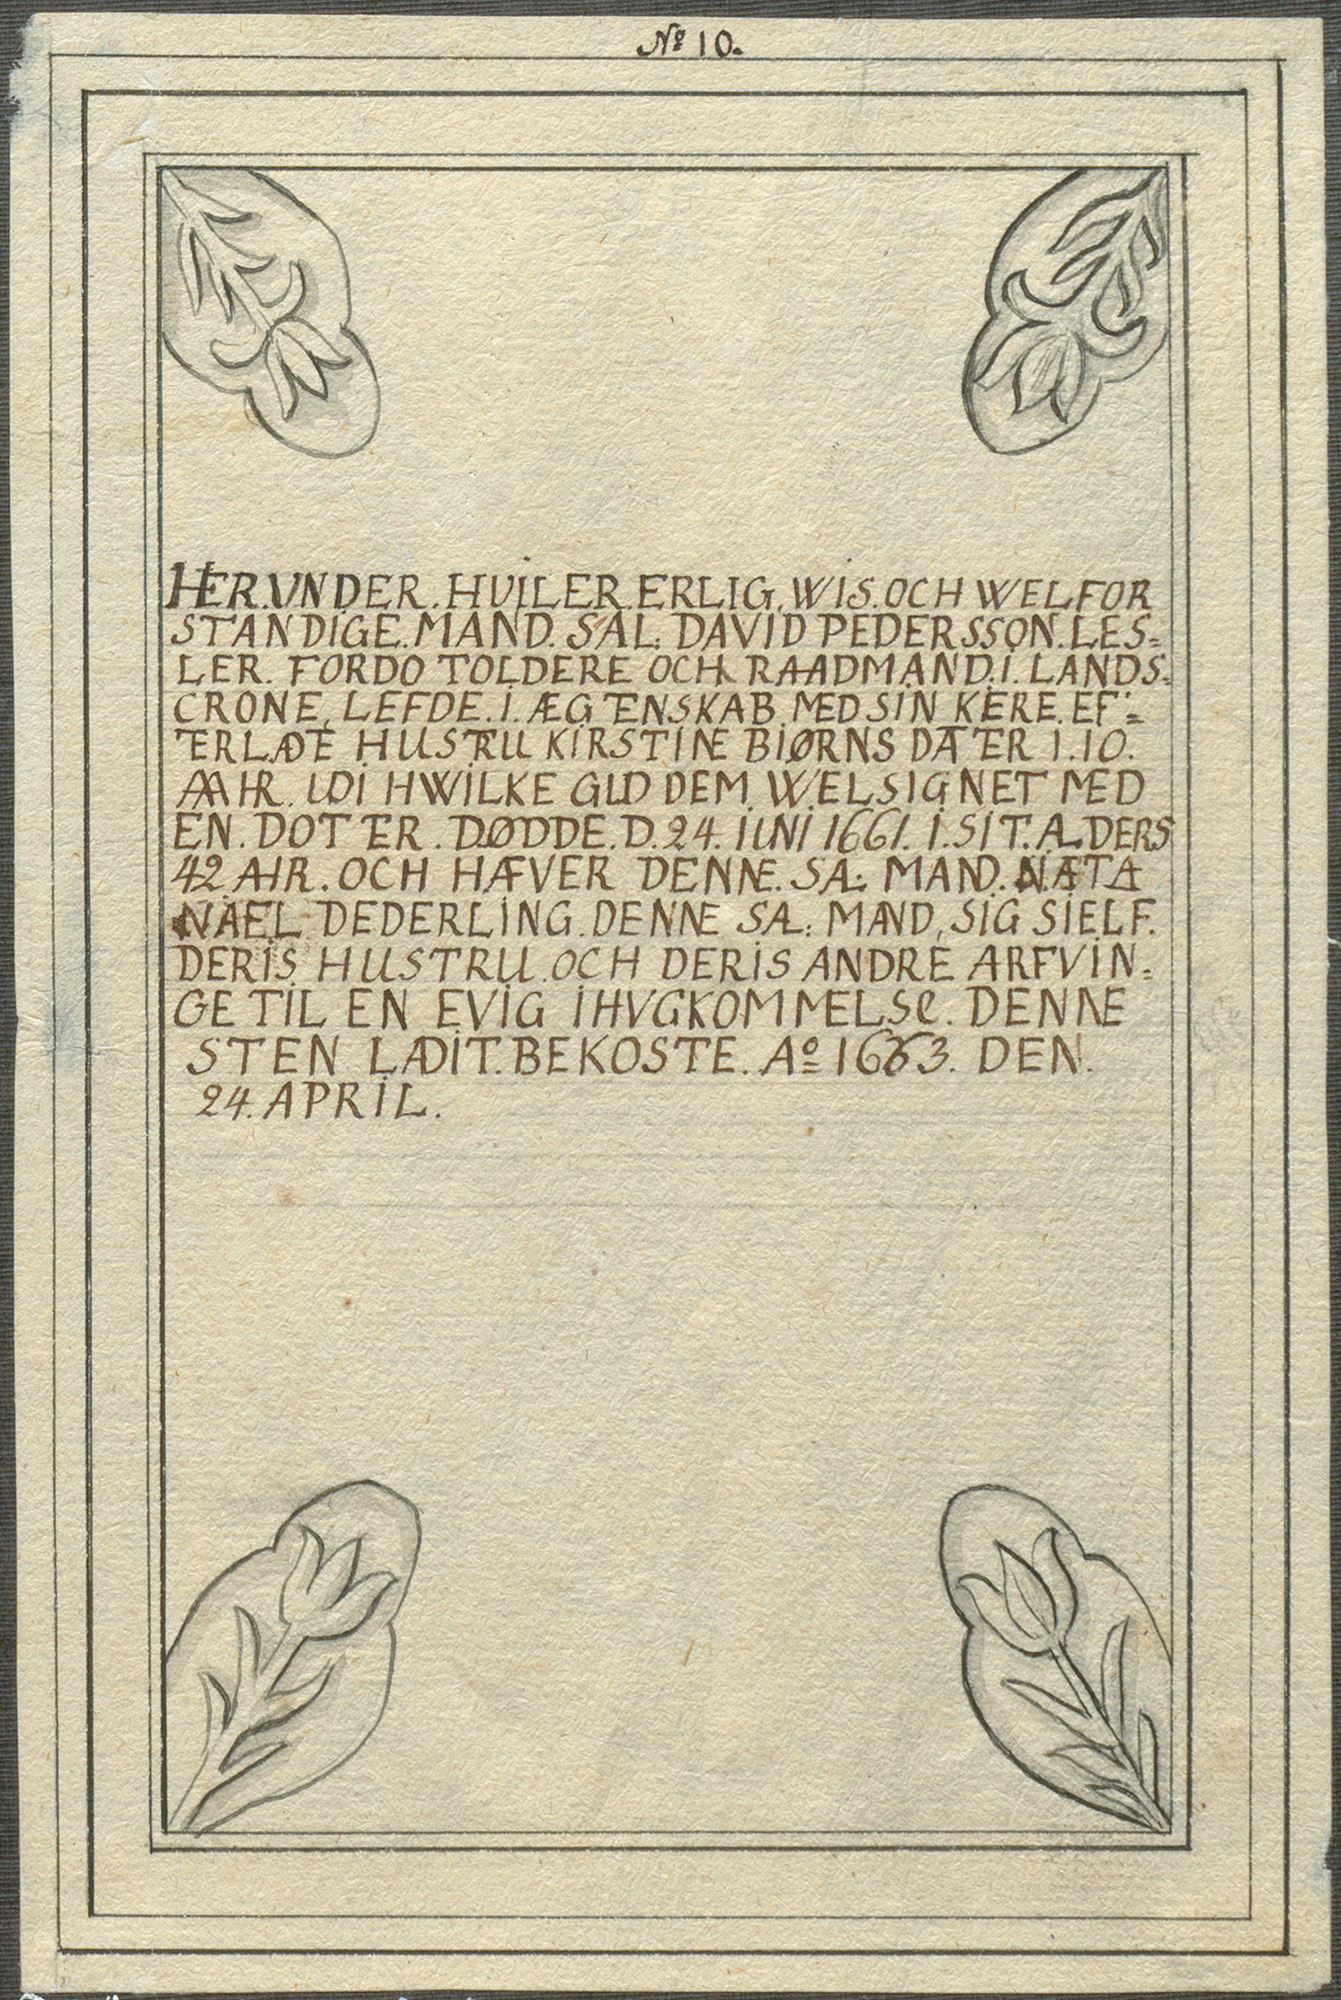 Nº 10.
HER.VNDER.HVILER.ERLIG.WIS.OCH WELFOR
STANDIGE.MAND.SAL: DAVID PEDERSSON.LES=
LER. FORDO TOLDERE OCH RAADMAND.I.LANDS=
CRONE, LEFDE.I.ÆGTENSKAB MED SIN KERE.EF=
ERLÆDE HUSTRU KIRSTINE BIØRNS DATER I.10.
AAHR. UDI HWILKE GUD DEM WELSIGNET MED
EN.DOTTER.DØDDE.D.24.IUNI 1661.I.SIT.ALDERS
42 AHR.OCH HÆVER DENNE.SA: MAND.NÆTA
NAEL DEDERLING.DENNE SA: MAND, SIG SIELF.
DERIS HUSTRU.OCH DERIS ANDRE ARFVIN=
GE TIL EN EVIG IHVGKOMMELSE. DENNE
STEN LÆDIT.BEKOSTE. Aº 1663. DEN.
24.APRIL.